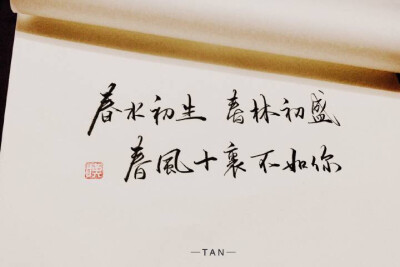 春水初生 春林初盛
春風十裏不如你
—TAN—